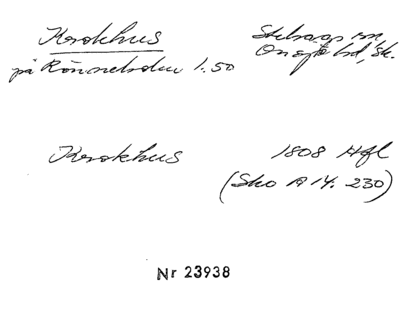 Krokhus
Stehags sn,
Onsjö hd, Sk.
på Rönneholm 1:50
Krokhus
1808 Hfl
(Sko A 14: 230)
Nr 23938